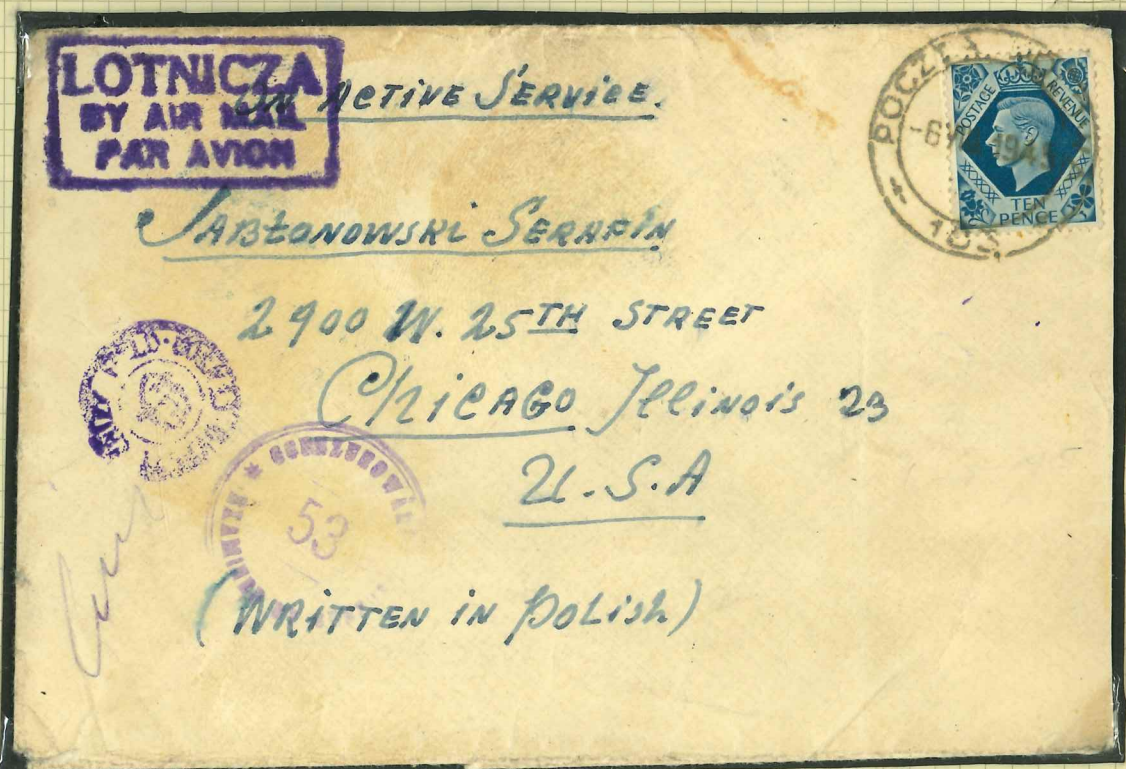 LOTNICZA
BY AIR MAIL
PAR AVION
ON ACTIVE SERVICE.
POSTAGE REVENUE
TEN
PENCE
JABŁONOWSKI SERAFIN
2900 W. 25TH STREET
CHICAGO ILLINOIS 23
U.S.A
53
(WRITTEN IN POLISH)